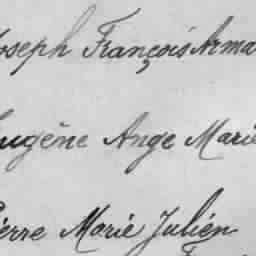 Joseph François Arma
Eugène Ange Marie
Pierre Marie Julien